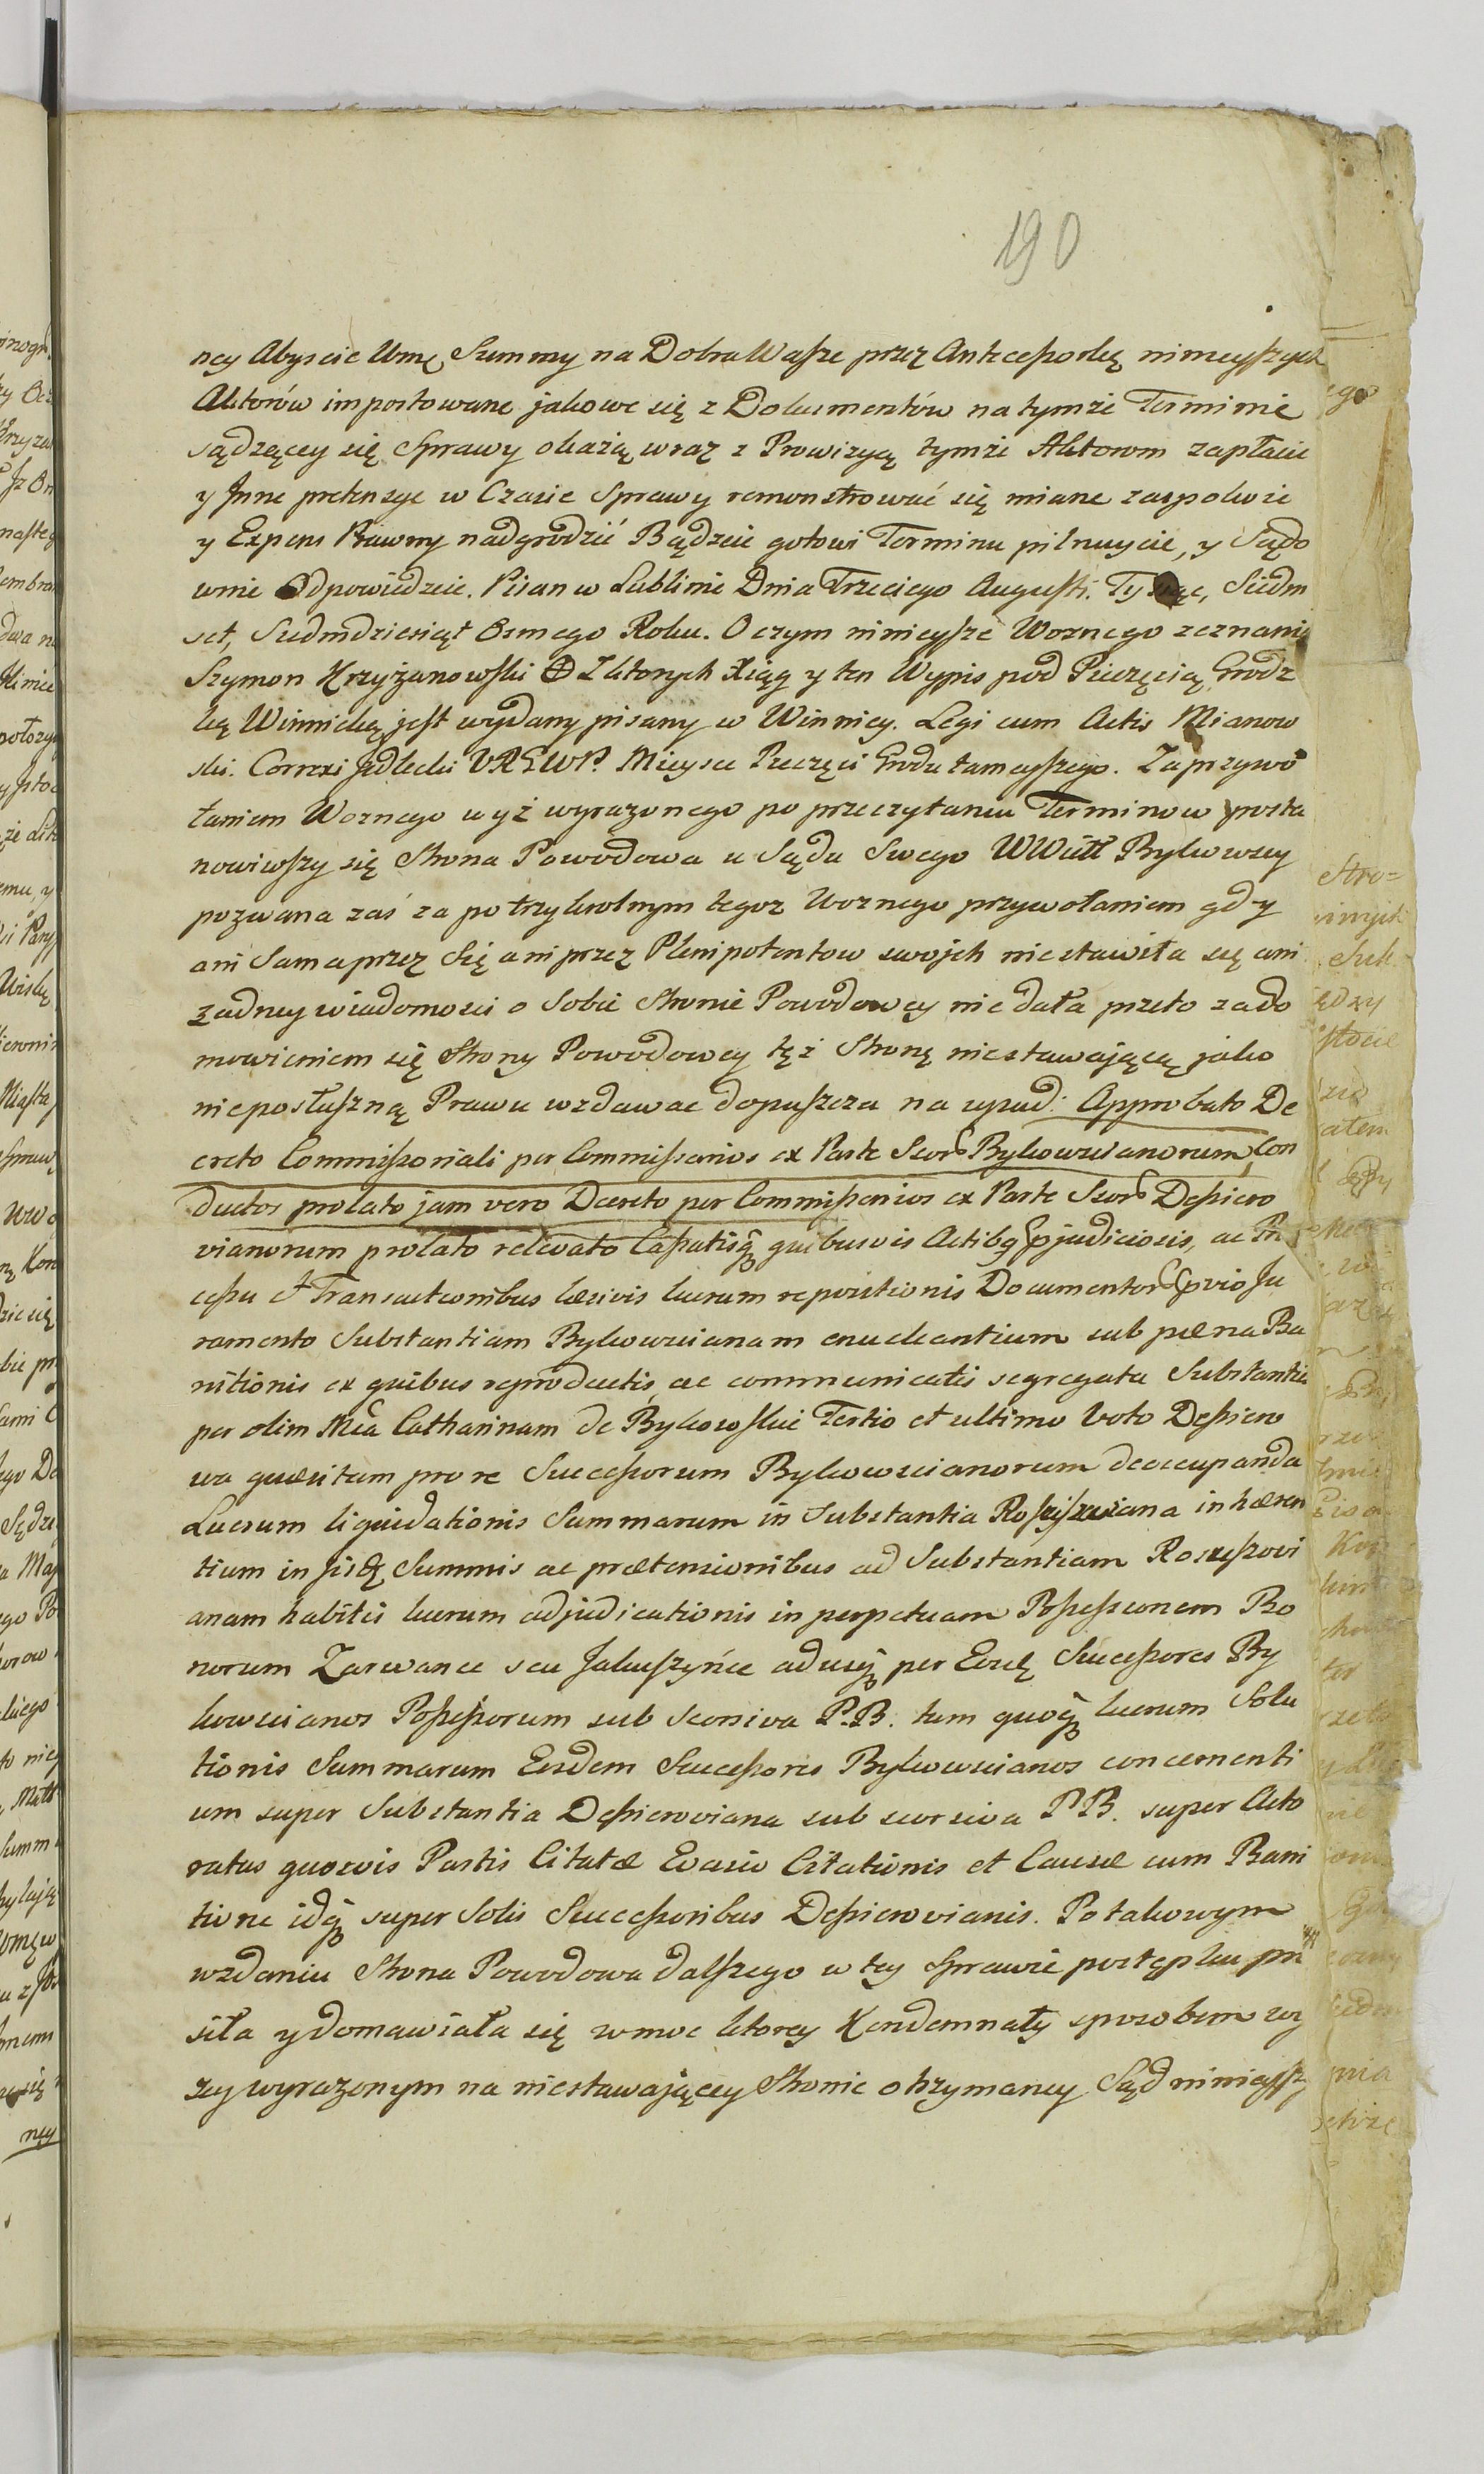 190
ney Abyscie Umę Summy na Dobra Wasze przez Antecessorkę ninieyszych
Aktorów importowane jakowe się z Dokumentów na tymże Terminie
sądzącey się Sprawy okażą wraz z Prowizyą tymże Aktorom zapłacić
y Jnne pretensye w Czasie Sprawy remonstrować się miane zaspokoić
y Expens Prawny nadgrodzić Bądźcie gotowi Terminu pilnuycie, y Sądo
wnie Odpowiedzcie. Pisan w Lublinie Dnia Trzeciego Augusti. Tysiąc, Siedm
set, Siedmdziesiąt Osmego Roku. O czym ninieysze Woznego zeznanie
Szymon Krzyżanowski Z ktorych Xiąg y ten Wypis pod Pieczęcią Grodz
ką Winnicką jest wydany pisany w Winnicy. Legi cum Actis Mianow
ski. Correxi Jedlecki VRGWP. Mieysce Pieczęci Grodu tameyszego. Za przywo
łaniem Woznego wyż wyrazonego po przeczytaniu Terminow posta
nowiwszy się Strona Powodowa u Sądu Swego WWütt Bykowscy
pozwana zaś za po trzykrotnym tegoz Woznego przywołaniem gdy
ani Sama przez Się ani przez Plenipotentow swojch nie stawiła się ani
zadney wiadomosci o Sobie Stronie Powodowey nie dała przeto za do
mowieniem się Strony Powodowey też Stronę niestawającą jako
nieposłuszną Prawu wzdawac dopuszcza na upad: Approbato De
creto Commissoriali per Commissarios ex Parte Sscor Bykowscianorum Con
ductos prolato jam vero Decreto per Commissarios ex Parte Sscor Despiero
vianorum prolato relevato Cassatisq quibusvis Actibq pjudiciosis, ac Pro
cessu et Transactionibus læsivis lucrum reportionis Documentor pvio Ju
ramento Substantiam Bykowscianam enucleantium sub pœna Ba
nitionis ex quibus reproductis ac communicatis segregata Substantia
per olim Mcam Catharinam de Bykowskie Tertio et ultimo Voto Despiero
wa quæsitam pro re Successorum Bykowscianorum deoccupanda
Lucrum liquidationis Summarum in Substantia inhæren
tium in Jisq Summis ac prætensionibus ad Substantiam Roszeszovi
anam habitis lucrum adjudicationis in perpetuam Possessionem Bo
norum Zarwance seu Jakuszyńce adusq per Eosdę Successores By
kowscianos Possessorum sub scorsiva P.B. tum quoq lucrum Solu
tionis Summarum Eosdem Successores Bykowscianos concernenti
um super Substantia Despieroviana sub scorsiva P.B. super Acto
ratus quosvis Partis Citatæ Evasio Citationis et Causæ cum Bani
tione idq super Solis Successoribus Despierovianis. Po takowym
wzdaniu Strona Powodowa dalszego w tey Sprawie postępku pro
siła y domawiała się w moc ktorey Kondemnaty sposobem wy
zey wyrazonym na niestawającey Stronie otrzymaney Sąd ninieyszy